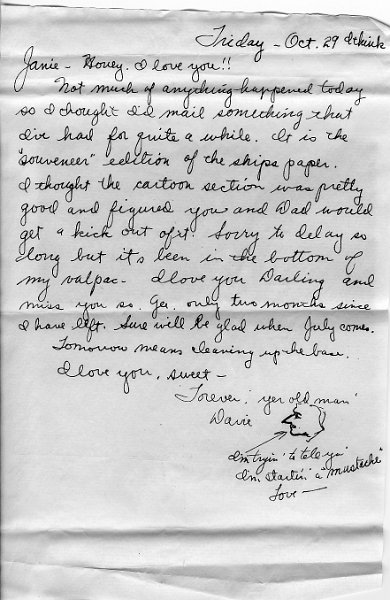 Friday - Oct. 29 I think
Janie - Honey. I love you!!
Not much of anything happened today
so I thought I'd mail something that
I've had for quite a while. It is the
"souveneer" edition of the ships paper.
I thought the cartoon section was pretty
good and figured you and Dad would
get a kick out of it. Sorry to delay so
long but it's been in the bottom of
my valpac - I love you Darling and
miss you so. Gee, only two months since
I have left. Sure will be glad when July comes.
Tomorrow means cleaning up the base.
I love you, sweet -
Forever, "yer old man"
Davie
I'm tryin' to tele ya'
I'm startin' a "mustache"
Love -